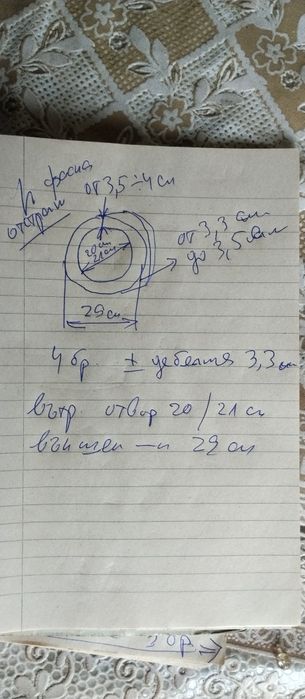 фаска
отстрани
от 3,5 ÷ 4 см
20 см
21 см
от 3,3 см
до 3,5 см
29 см
4 бр. ± дебелия 3,3 см
вътр. отвор 20 / 21 см
външен —"— 29 см
до 3